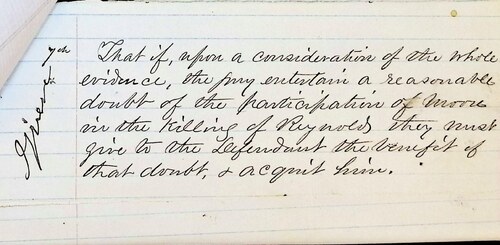 7th
Given
That if, upon a consideration of the whole
evidence, the jury entertain a reasonable
doubt of the participation of Moore
in the killing of Reynolds they must
give to the Defendant the benefit of
that doubt, & acquit him.